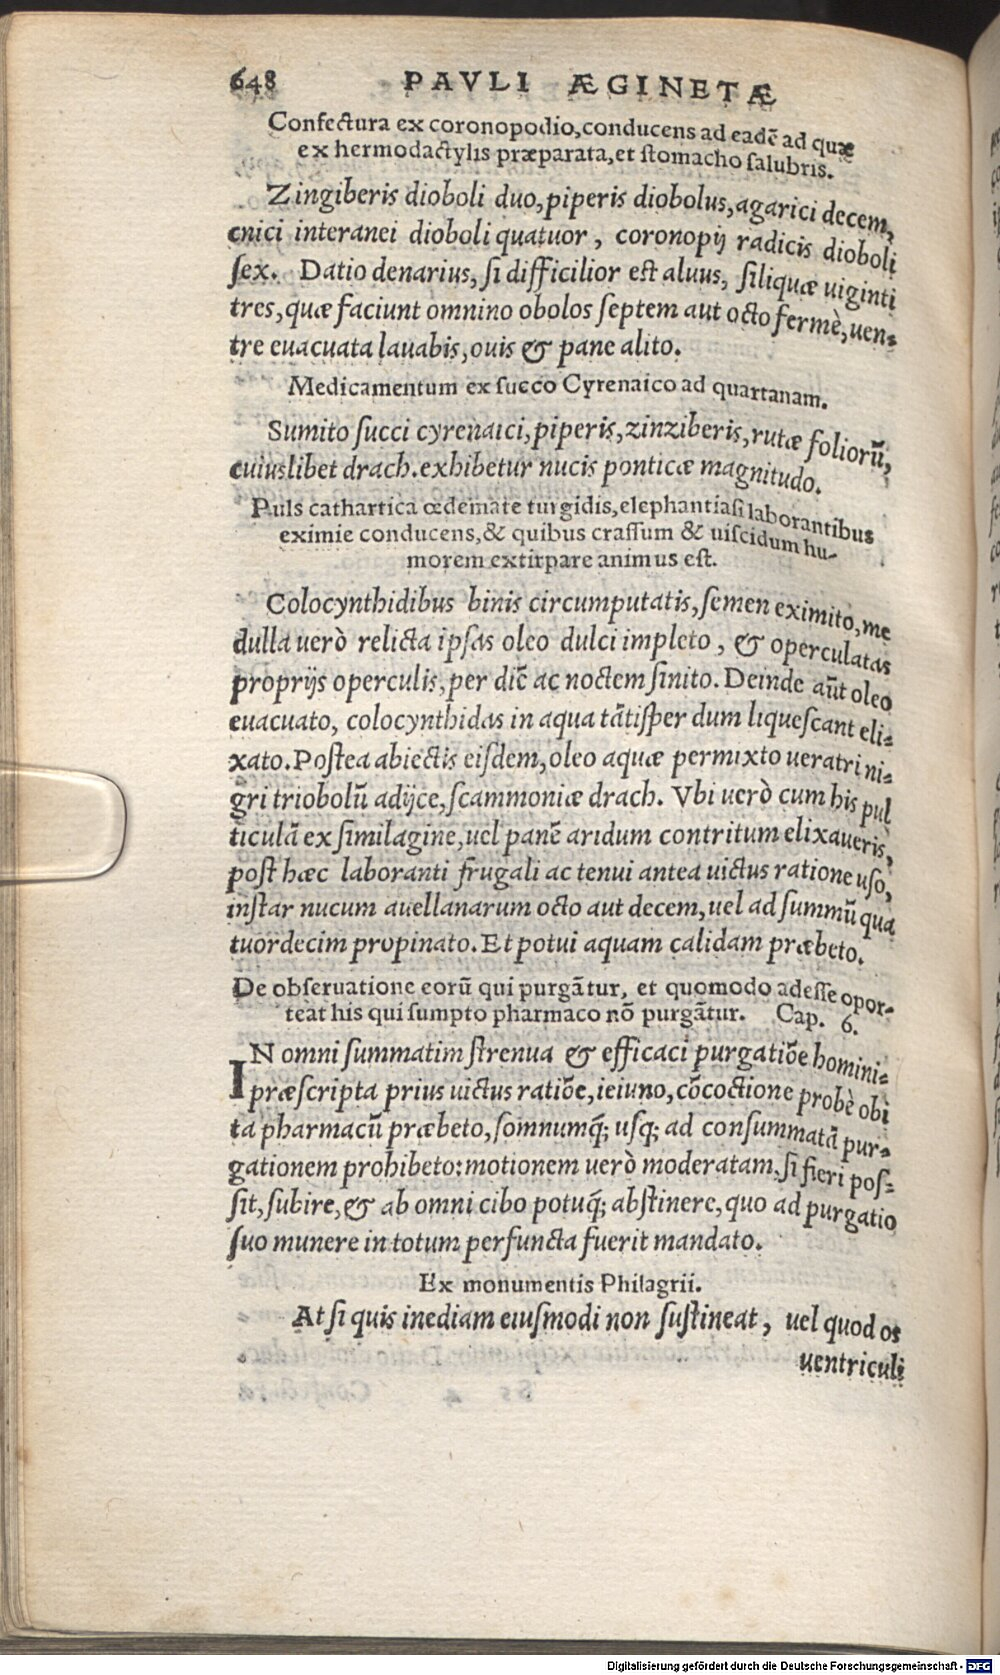 648 PAVLI ÆGINETÆ
Confectura ex coronopodio, conducens ad eadē ad quæ
ex hermodactylis præparata, et stomacho salubris.
Zingiberis dioboli duo, piperis diobolus, agarici decem,
cnici interanei dioboli quatuor, coronopij radicis dioboli
sex. Datio denarius, si difficilior est aluus, siliquæ uiginti
tres, quæ faciunt omnino obolos septem aut octo fermè, uen-
tre euacuata lauabis, ouis & pane alito.
Medicamentum ex succo Cyrenaico ad quartanam.
Sumito succi cyrenaici, piperis, zinziberis, rutæ folioru̅,
cuiuslibet drach. exhibetur nucis ponticæ magnitudo.
Puls cathartica œdemate turgidis, elephantiasi laborantibus
eximie conducens, & quibus crassum & uiscidum hu-
morem extirpare animus est.
Colocynthidibus binis circumputatis, semen eximito, me
dulla uerò relicta ipsas oleo dulci impleto, & operculatas
proprijs operculis, per diē ac noctem sinito. Deinde aūt oleo
euacuato, colocynthidas in aqua tātisper dum liquescant eli-
xato. Postea abiectis eisdem, oleo aquæ permixto ueratri ni-
gri triobolū adijce, scammoniæ drach. Vbi uerò cum his pul
ticulā ex similagine, uel panē aridum contritum elixaueris,
post hæc laboranti frugali ac tenui antea uictus ratione uso,
instar nucum auellanarum octo aut decem, uel ad summū qua
tuordecim propinato. Et potui aquam calidam præbeto.
De obseruatione eorū qui purgātur, et quomodo adesse opor-
teat his qui sumpto pharmaco nō purgātur. Cap. 6.
IN omni summatim strenua & efficaci purgatiōe homini-
præscripta prius uictus ratiōe, ieiuno, cōcoctione probè obi
ta pharmacū præbeto, somnumq́; usq; ad consummatā pur-
gationem prohibeto: motionem uerò moderatam, si fieri pos-
sit, subire, & ab omni cibo potuq́; abstinere, quo ad purgatio
suo munere in totum perfuncta fuerit mandato.
Ex monumentis Philagrii.
At si quis inediam eiusmodi non sustineat, uel quod os
uentriculi
Digitalisierung gefördert durch die Deutsche Forschungsgemeinschaft - DFG